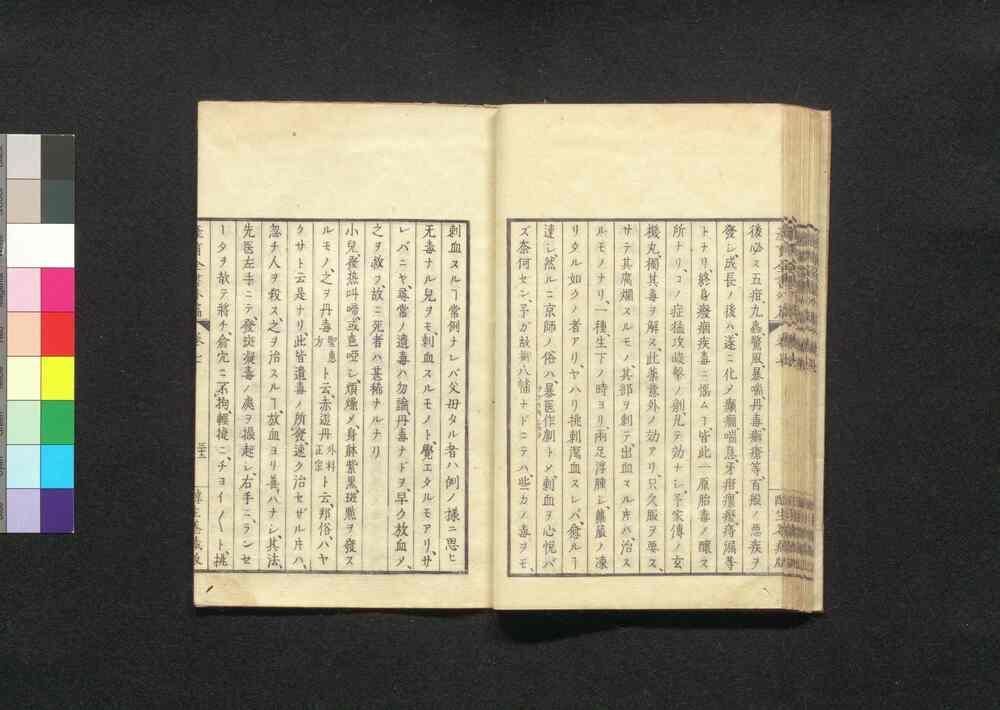 後必ス五疳、九蟲、驚風、暴喘、丹毒、癬瘡等、百般ノ悪疾ヲ
發シ、成長ノ後ハ、遂ニ化メ癲癇、喘息、牙疳、瘰癧、痔漏等
トナリ、終身癈痼疾毒ニ惱ムヿ、皆此一原胎毒ノ釀ス
所ナリ、コノ症猛攻峻撃ノ劑丸テ効ナシ、予家傳ノ玄
機丸、獨其毒ヲ解ス、此藥意外ノ効アリ、只久服ヲ要ス、
サテ其腐爛スルモノ、其部ヲ刺テ、出血スル片ハ、治ス
ルモノナリ、一種、生下ノ時ヨリ、兩足浮腫シ、蘿蔔ノ凍
リタル如クノ者アリ、ヤハリ挑刺瀉血スレバ、愈ルヿ
速シ、然ルニ京師ノ俗ハ、暴医作劇トメ、刺血ヲ心悦バ
ズ奈何セン、予ガ故郷八幡ナドニテハ、些カノ毒ヲモ、
刺血スルヿ常例ナレバ、父毋タル者ハ例ノ様ニ思ヒ
无毒ナル兒ヲモ、刺血スルモノト、覺エタルモアリ、サ
レバニヤ、尋常ノ遺毒ハ勿論、丹毒ナドヲ、早ク放血メ、
之ヲ救フ故ニ、死者ハ甚稀ナルナリ
小兒發热叫啼、或色啞シ、煩燥メ、身躰紫黒、斑䵟ヲ發ス
ルモノ、之ヲ丹毒聖惠方ト云、赤遊丹外科正宗ト云、邦俗、ハヤ
クサト云是ナリ、此皆遺毒ノ所發、速ク治セザル片ハ、
忽チ人ヲ殺ス、之ヲ治スルヿ、放血ヨリ善ハナシ、其法、
先医左手ニテ、發斑凝毒ノ處ヲ撮起シ、右手ニランセ
ータヲ取テ將チ、兪穴ニ不拘、輕捷ニ、チヨイ〱ト、挑
卷七